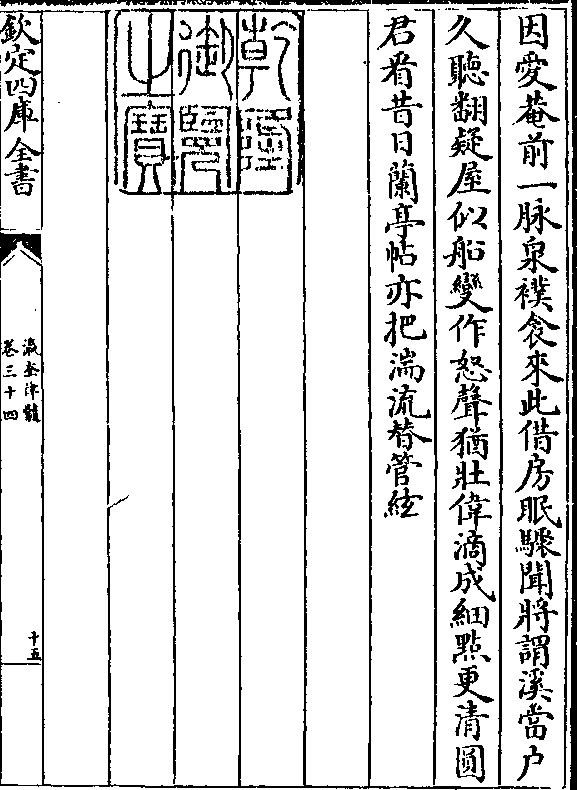 因愛菴前一脉泉襆衾來此借房眠驟聞將謂溪當户
久聽翻疑屋似船變作怒聲猶壯偉滴成細㸃更清圓
君看昔日蘭亭帖亦把湍流替管絃
乾隆
御覽
之寶
欽定四庫全書
瀛奎律髓
卷三十四
十五